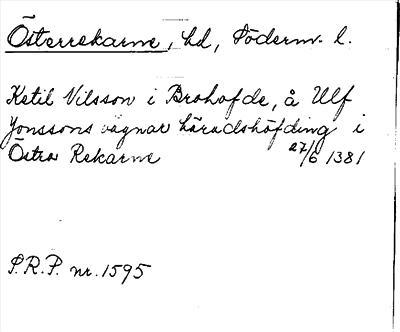 Österrekarne, hd, Söderm. l.
Ketil Nilsson i Brohofde, å Ulf
Jonssons vägnar häradshöfding i
Östra Rekarne 27/6 1381
S.R.P. nr. 1595